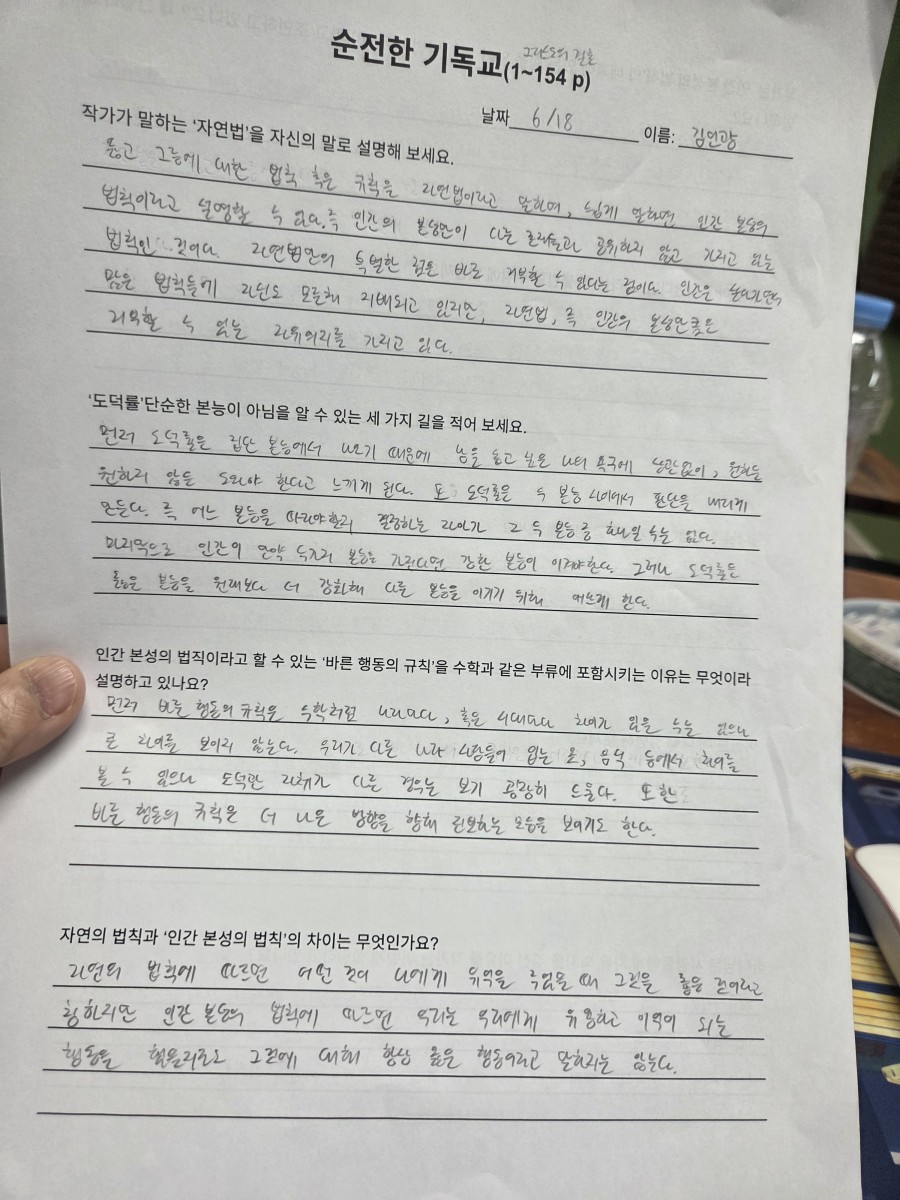 순전한 기독교(1~154 p)
날짜 6/18 이름: 김연광
작가가 말하는 '자연법'을 자신의 말로 설명해 보세요.
옳고 그름에 대한 법칙 혹은 규칙을 자연법이라고 말하며, 쉽게 말하면 인간 본성의
법칙이라고 설명할 수 있다. 즉 인간의 본성만이 다른 존재들과 공유하지 않고 가지고 있는
법칙인 것이다. 자연법만의 특별한 점은 바로 거부할 수 있다는 점이다. 인간은
많은 법칙들에 자신도 모르게 지배되고 있지만, 자연법, 즉 인간의 본성만큼은
거역할 수 있는 자유의지를 가지고 있다.
'도덕률'단순한 본능이 아님을 알 수 있는 세 가지 길을 적어 보세요.
먼저 도덕률은 집단 본능에서 나오기 때문에 남을 돕고 싶은 나의 욕구에 상관없이, 원하든
원하지 않든 도와야 한다고 느끼게 된다. 또 도덕률은 두 본능 사이에서 판단을 내리게
만든다. 즉 어느 본능을 따라야 할지 결정하는 자아가 그 두 본능 중 하나일 수는 없다.
마지막으로 인간이 만약 두가지 본능을 가진다면 강한 본능이 이겨야한다. 그러나 도덕률은
옳은 본능을 원래보다 더 강화해 다른 본능을 이기기 위해 애쓰게 한다.
인간 본성의 법직이라고 할 수 있는 '바른 행동의 규칙'을 수학과 같은 부류에 포함시키는 이유는 무엇이라
설명하고 있나요?
먼저 바른 행동의 규칙은 수학처럼 나라마다, 혹은 시대마다 차이가 있을 수는 있으나
큰 차이를 보이지 않는다. 우리가 다른 나라 사람들이 입는 옷, 음식 등에서 차이를
볼 수 있으나 도덕관 자체가 다른 경우는 보기 굉장히 드물다. 또한
바른 행동의 규칙은 더 나은 방향을 향해 진보하는 모습을 보여기도 한다.
자연의 법칙과 '인간 본성의 법칙'의 차이는 무엇인가요?
자연의 법칙에 따르면 어떤 것이 나에게 유익을 주었을 때 그것을 옳은 것이라고
칭하지만 인간 본성의 법칙에 따르면 우리는 우리에게 유용하고 이익이 되는
행동을 했을지라도 그것에 대해 항상 옳은 행동이라고 말하지는 않는다.